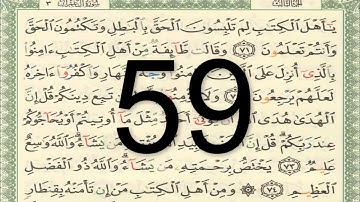 الجزء الثالث سورة آل عمران ٣
يَٰٓأَهْلَ ٱلْكِتَٰبِ لِمَ تَلْبِسُونَ ٱلْحَقَّ بِٱلْبَٰطِلِ وَتَكْتُمُونَ ٱلْحَقَّ
وَأَنتُمْ تَعْلَمُونَ ٧١ وَقَالَت طَّآئِفَةٌ مِّنْ أَهْلِ ٱلْكِتَٰبِ ءَامِنُوا۟
بِٱلَّذِىٓ أُنزِلَ عَلَى ءَامَنُوا۟ وَجْهَ ٱلنَّهَارِ وَٱكْفُرُوٓا۟ ءَاخِرَهُۥ
لَعَلَّهُمْ يَرْجِعُونَ تَبِعَ دِينَكُمْ قُلْ إِنَّ
ٱلْهُدَىٰ هُدَى أَحَدٌ مِّثْلَ مَآ أُوتِيتُمْ أَوْ يُحَآجُّوكُمْ
عِندَ رَبِّكُمْ قُلْ إِنَّ مَن يَشَآءُ وَٱللَّهُ وَٰسِعٌ
عَلِيمٌ ٧٣ يَخْتَصُّ بِرَحْمَتِهِۦ مَن يَشَآءُ وَٱللَّهُ ذُو ٱلْفَضْلِ
ٱلْعَظِيمِ ٧٤ وَمِنْ أَهْلِ ٱلْكِتَٰبِ مَنْ إِن تَأْمَنْهُ بِقِنطَارٍ
59